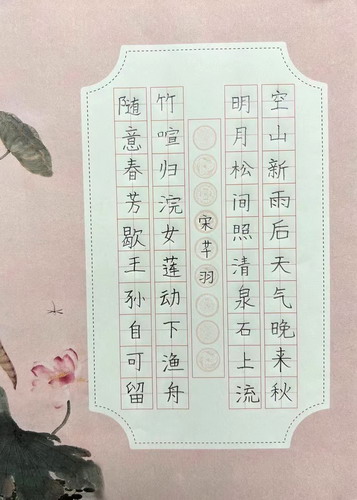 空山新雨后天气晚来秋
明月松间照清泉石上流
宋芊羽
竹喧归浣女莲动下渔舟
随意春芳歇王孙自可留